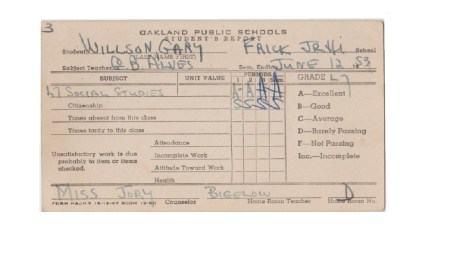 3
OAKLAND PUBLIC SCHOOLS
STUDENT'S REPORT
Student WILLSON GARY FRICK JR HI School
(LAST NAME FIRST)
Subject Teacher B. ALVES Sem. Ending JUNE 12 1953
SUBJECT UNIT VALUE PERIODS GRADE L7
1 2 3 Sem.
L7 SOCIAL STUDIES A- A- A A
Citizenship S S S S
Times absent from this class
Times tardy to this class
Unsatisfactory work is due probably to item or items checked.
Attendance
Incomplete Work
Attitude Toward Work
Health
A—Excellent
B—Good
C—Average
D—Barely Passing
F—Not Passing
Inc.—Incomplete
MISS JORY BIGELOW D
Counselor Home Room Teacher Home Room No.